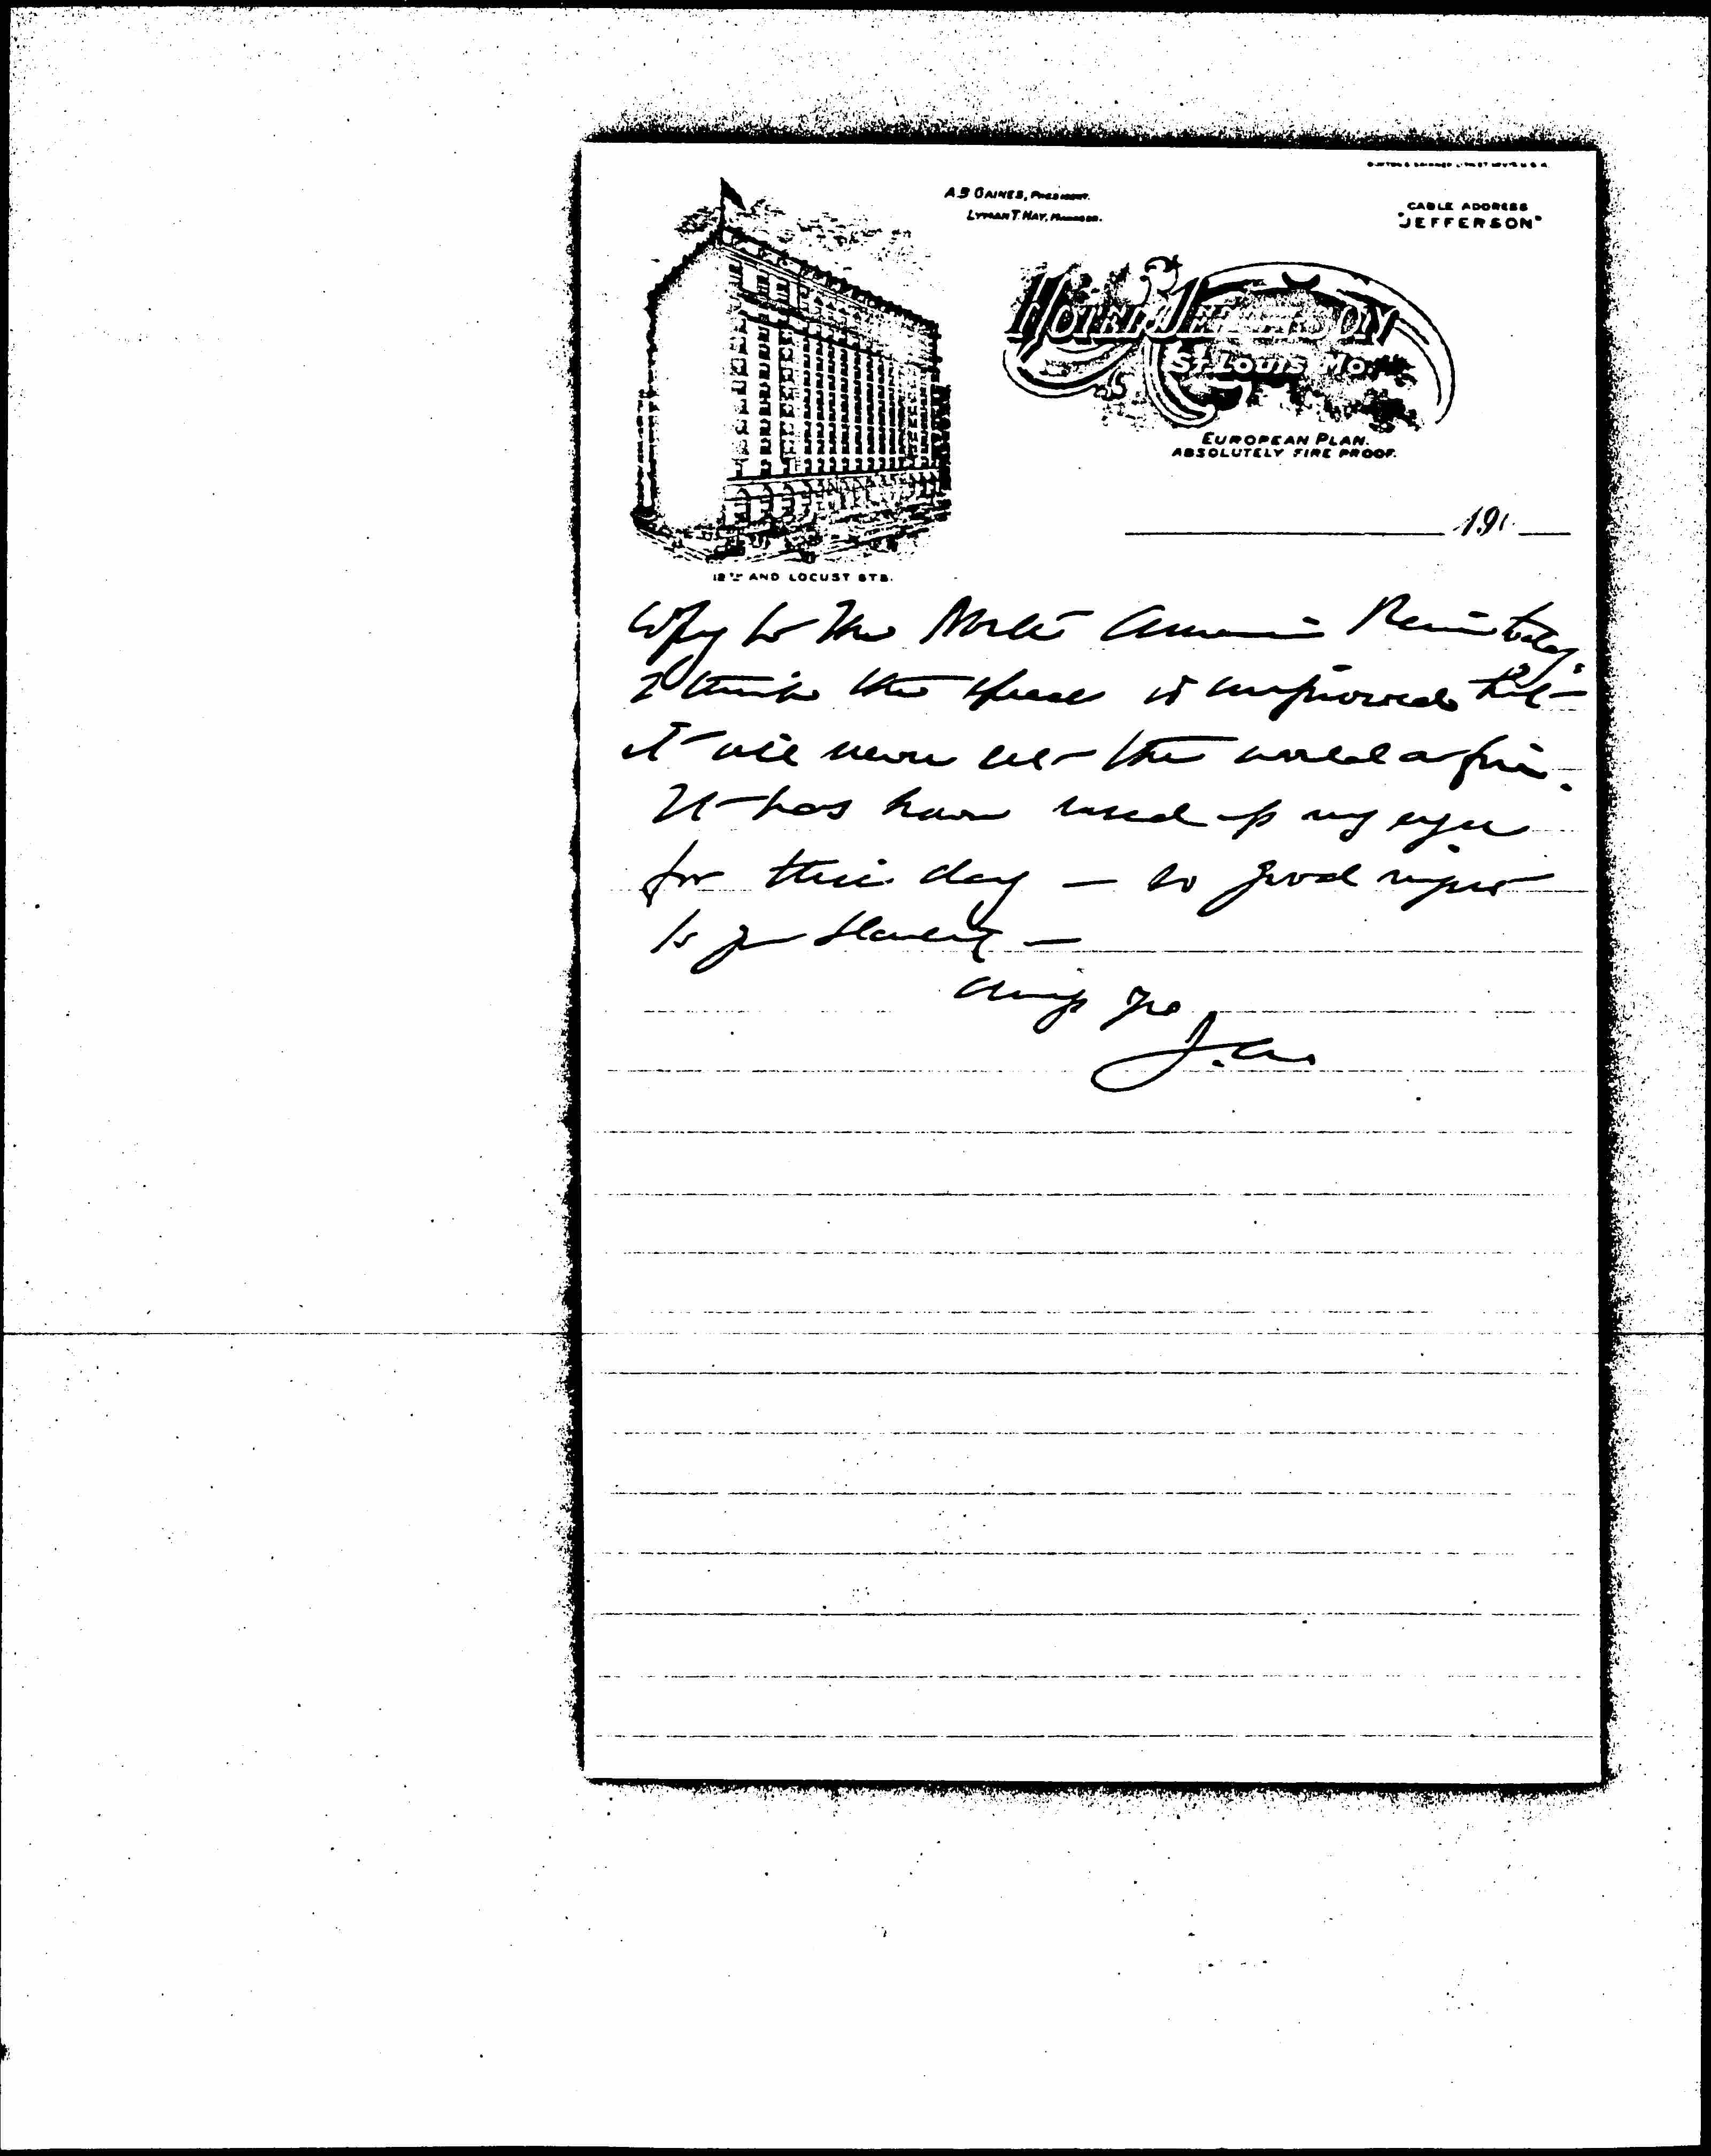 A B GAINES, PRESIDENT.
LYMAN T. HAY, MANAGER.
CABLE ADDRESS
"JEFFERSON"
HOTEL JEFFERSON
ST. LOUIS MO.
EUROPEAN PLAN.
ABSOLUTELY FIRE PROOF.
190
12TH AND LOCUST STS.
copy to the North American Review today.
I think the speech is improved but
it will never set the world afire.
It has however used up my eyes
for this day — so good night
to you
J.